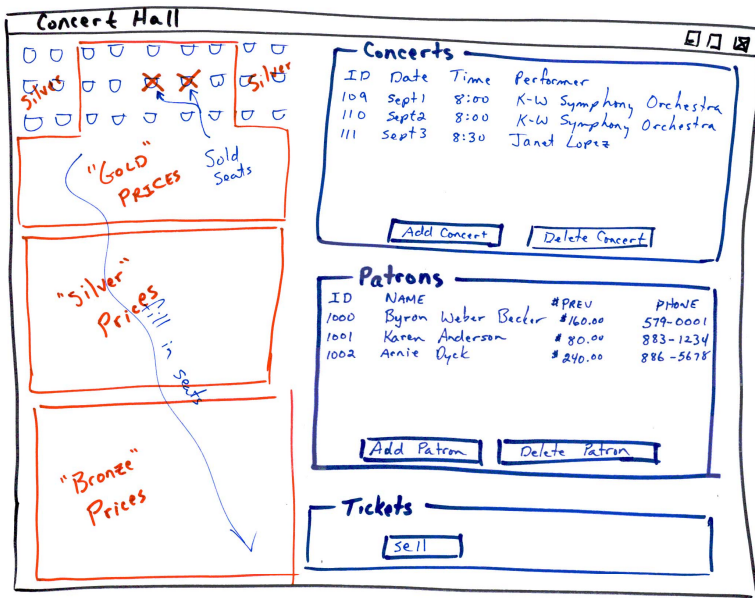 Concert Hall
Silver
Silver
Sold
Seats
"GOLD"
PRICES
"Silver"
Prices
fill in seats
"Bronze"
Prices
Concerts
ID Date Time Performer
109 Sept 1 8:00 K-W Symphony Orchestra
110 Sept 2 8:00 K-W Symphony Orchestra
111 Sept 3 8:30 Janet Lopez
Add Concert Delete Concert
Patrons
ID NAME $PREV PHONE
1000 Byron Weber Becker $160.00 579-0001
1001 Karen Anderson $80.00 883-1234
1002 Arnie Dyck $240.00 886-5678
Add Patron Delete Patron
Tickets
sell